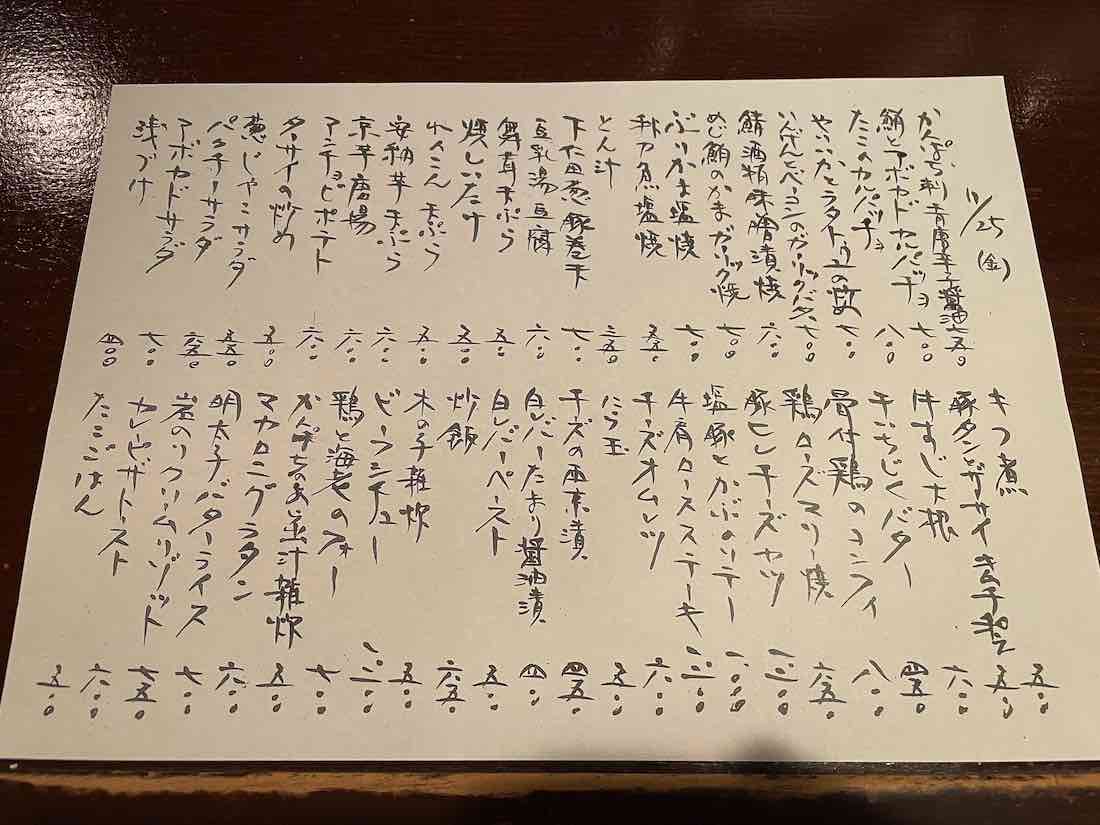 11/25(金)
かんぱち刺青唐辛子醤油 七五〇
鮪とアボカドカルパッチョ 七〇〇
たこのカルパッチョ 八〇〇
やりいかとラタトゥユの炒め 七〇〇
いんげんとベーコンのガーリックバタ 七〇〇
鯖酒粕味噌漬焼 六〇〇
めじ鮪のかまガーリック焼 七〇〇
ぶりかま塩焼 七〇〇
秋刀魚塩焼 五五〇
とん汁 三五〇
下仁田葱豚巻天 七〇〇
豆乳湯豆腐 六〇〇
舞茸天ぷら 五〇〇
焼しいたけ 五〇〇
れんこん天ぷら 五〇〇
安納芋天ぷら 六〇〇
京芋唐揚 六〇〇
アンチョビポテト 六〇〇
ターサイの炒め 五〇〇
葱じゃこサラダ 五五〇
パクチーサラダ 六五〇
アボカドサラダ 七〇〇
浅づけ 四〇〇
もつ煮 五〇〇
豚タンとザーサイキムチ和え 五五〇
牛すじ大根 六〇〇
干いちじくバター 四五〇
骨付鶏のコンフィ 八〇〇
鶏ローズマリー焼 六五〇
豚ヒレチーズカツ 一二〇〇
塩豚とかぶのソテー 一〇〇〇
牛肩ロースステーキ 一二〇〇
チーズオムレツ 六〇〇
にら玉 五〇〇
チーズの西京漬 四五〇
白レバーたまり醤油漬 四〇〇
白レバーペースト 五〇〇
炒飯 六五〇
木の子雑炊 五〇〇
ビーフシチュー 一二〇〇
鶏と海老のフォー 七〇〇
かんぱちのあら汁雑炊 五〇〇
マカロニグラタン 六〇〇
明太子バターライス 七〇〇
岩のりクリームリゾット 七五〇
カレーピザトースト 六〇〇
たまごごはん 五〇〇